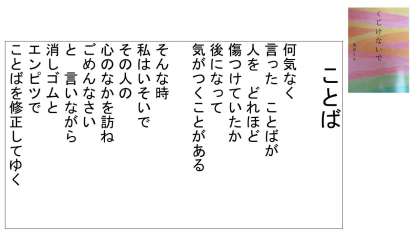 ことば
何気なく
言った　ことばが
人を　どれほど
傷つけていたか
後になって
気がつくことがある
そんな時
私はいそいで
その人の
心のなかを訪ね
ごめんなさい
と　言いながら
消しゴムと
エンピツで
ことばを修正してゆく
くじけないで